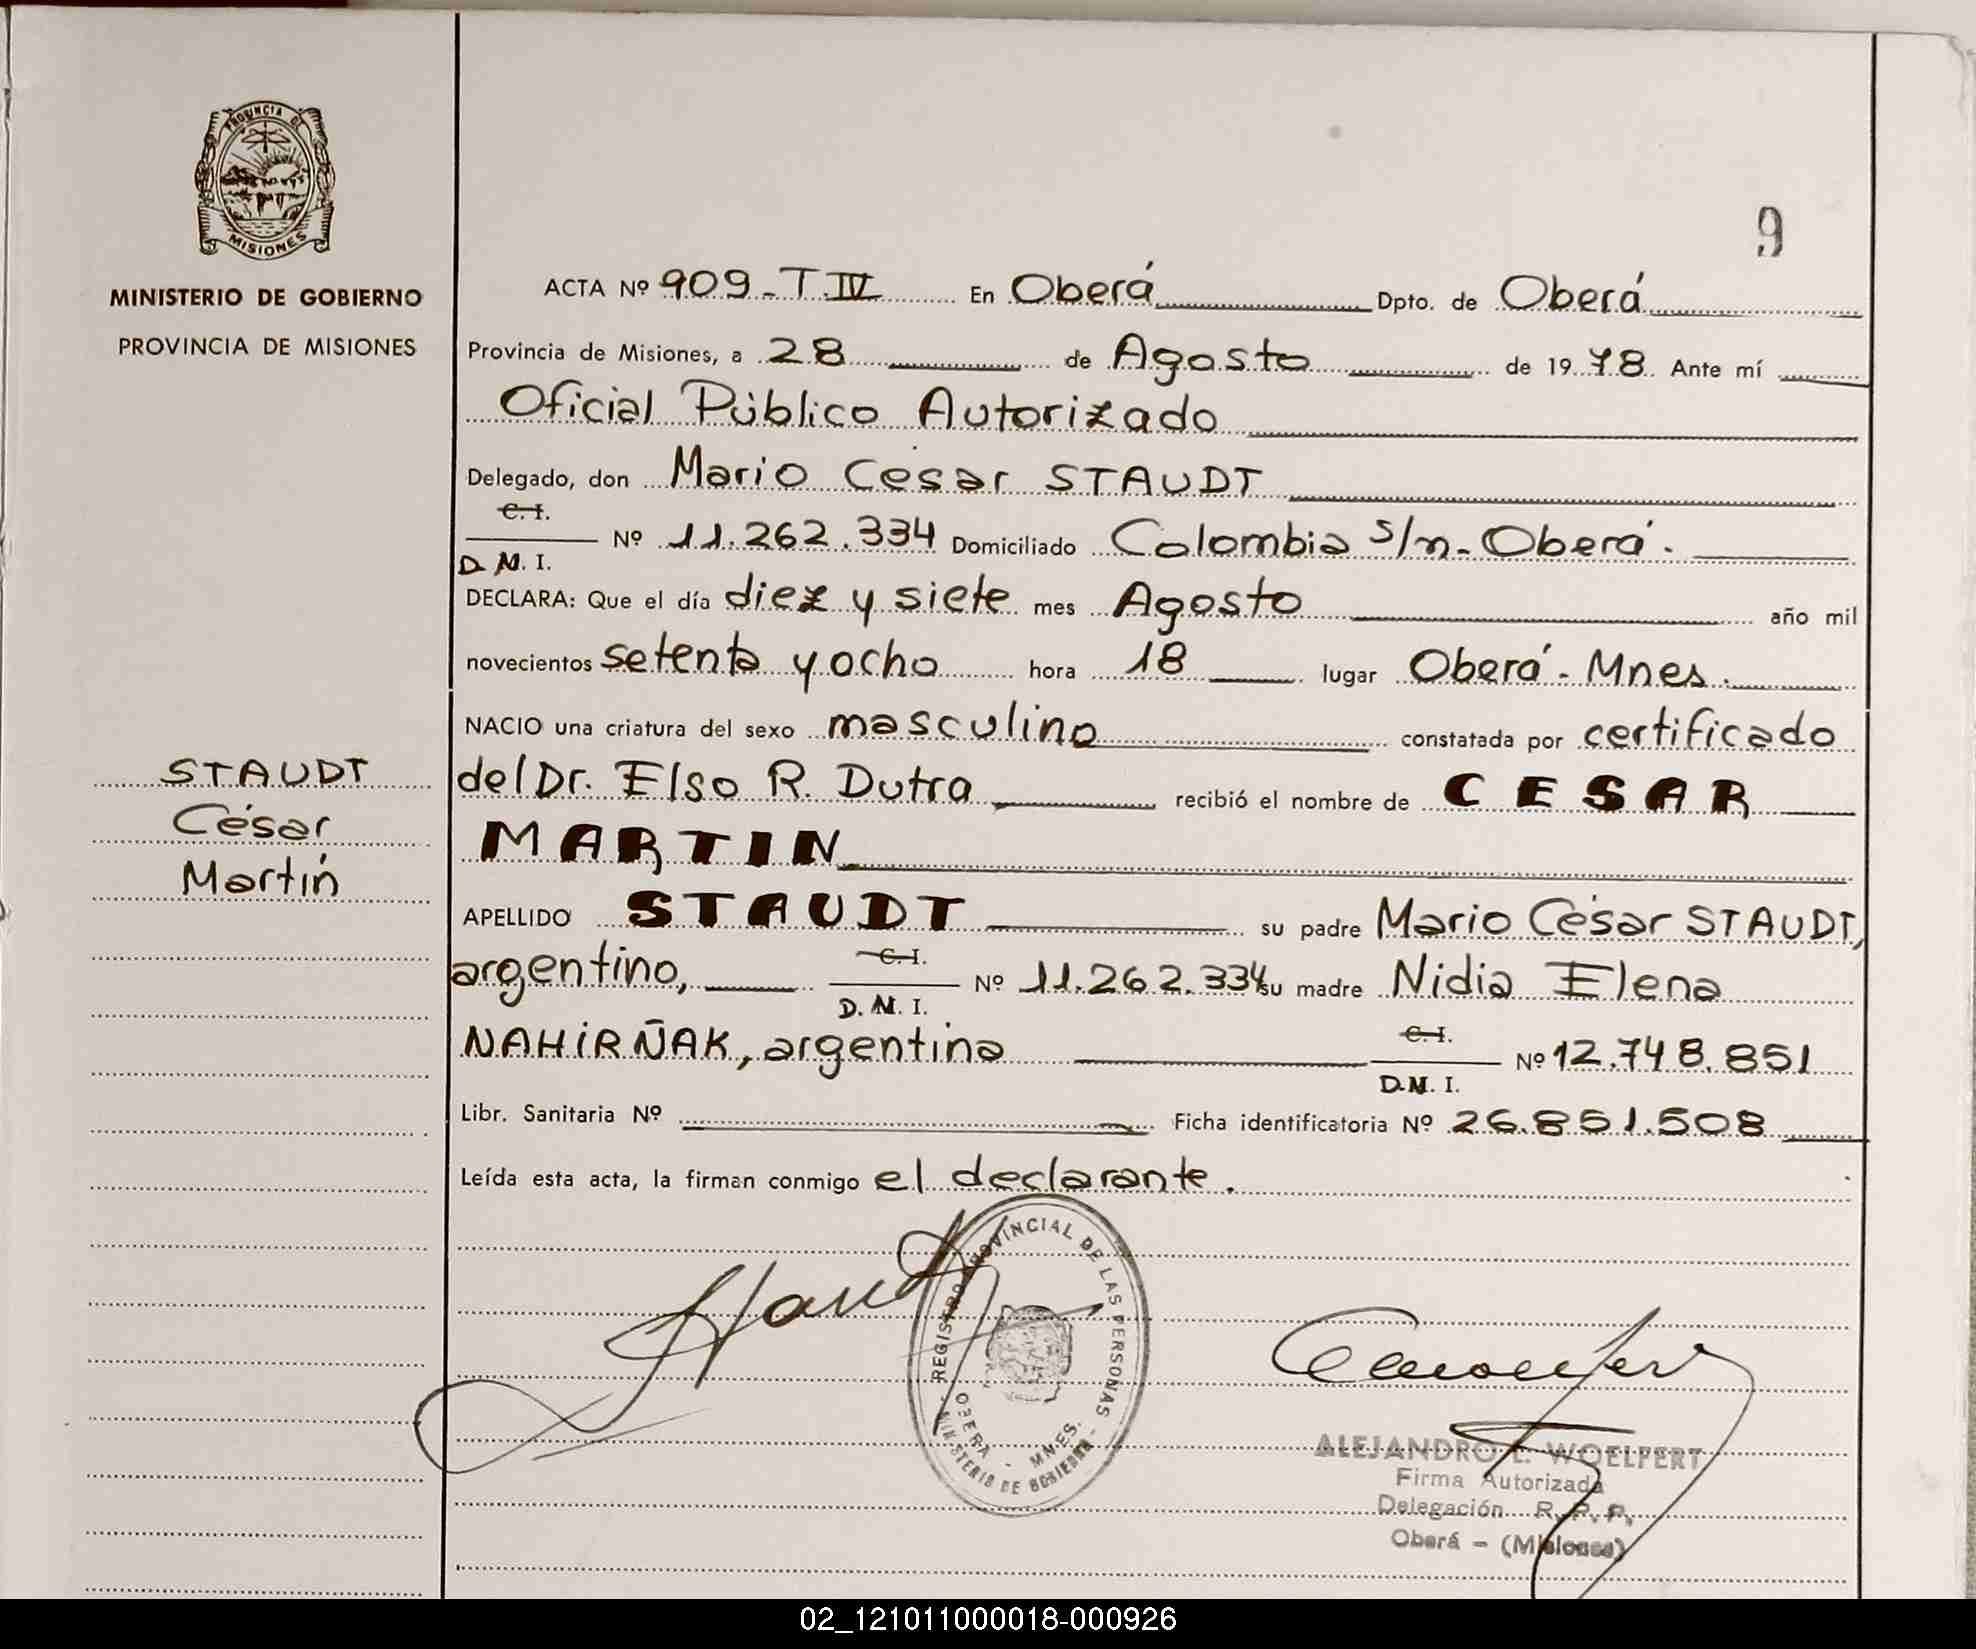 PROVINCIA DE
MISIONES
MINISTERIO DE GOBIERNO
PROVINCIA DE MISIONES
9
ACTA Nº 909-T.IV En Oberá Dpto. de Oberá
Provincia de Misiones, a 28 de Agosto de 1978 Ante mí
Oficial Público Autorizado
Delegado, don Mario César STAUDT
C.I.
D.M.I. Nº 11.262.334 Domiciliado Colombia s/n- Oberá.
DECLARA: Que el día diez y siete mes Agosto año mil
novecientos setenta y ocho hora 18 lugar Oberá- Mnes.
NACIO una criatura del sexo masculino constatada por certificado
del Dr. Elso R. Dutra recibió el nombre de CESAR
MARTIN
APELLIDO STAUDT su padre Mario César STAUDT,
argentino, C.I. D.M.I. Nº 11.262.334 su madre Nidia Elena
NAHIRÑAK, argentina C.I. D.M.I. Nº 12.748.851
Libr. Sanitaria Nº Ficha identificatoria Nº 26.851.508
Leída esta acta, la firman conmigo el declarante.
STAUDT
César
Martín
REGISTRO PROVINCIAL DE LAS PERSONAS
MINISTERIO DE GOBIERNO
OBERA - MNES.
ALEJANDRO L. WOELFERT
Firma Autorizada
Delegación R. P. P.
Oberá - (Misiones)
02_121011000018-000926